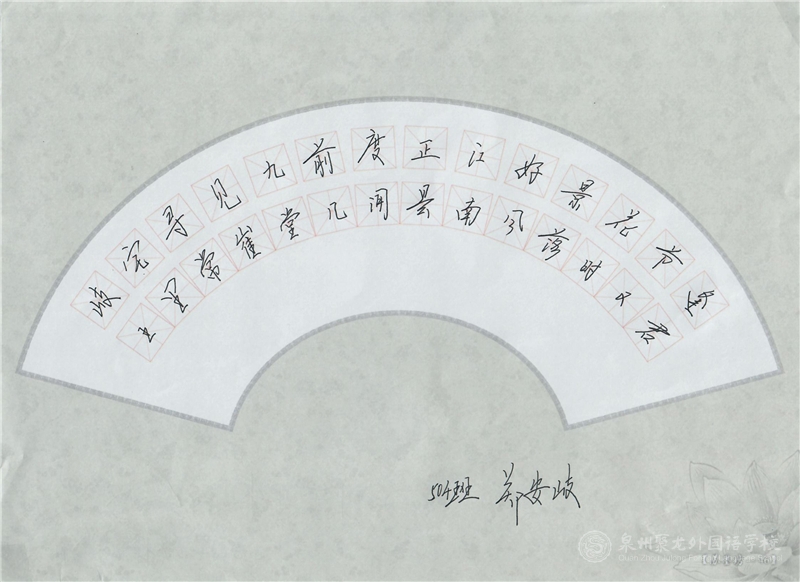 岐王
宅里
寻常
见崔
九堂
前几
度闻
正是
江南
好风
景落
花时
节又
逢君
504班 郑安岐
泉州聚龙外国语学校